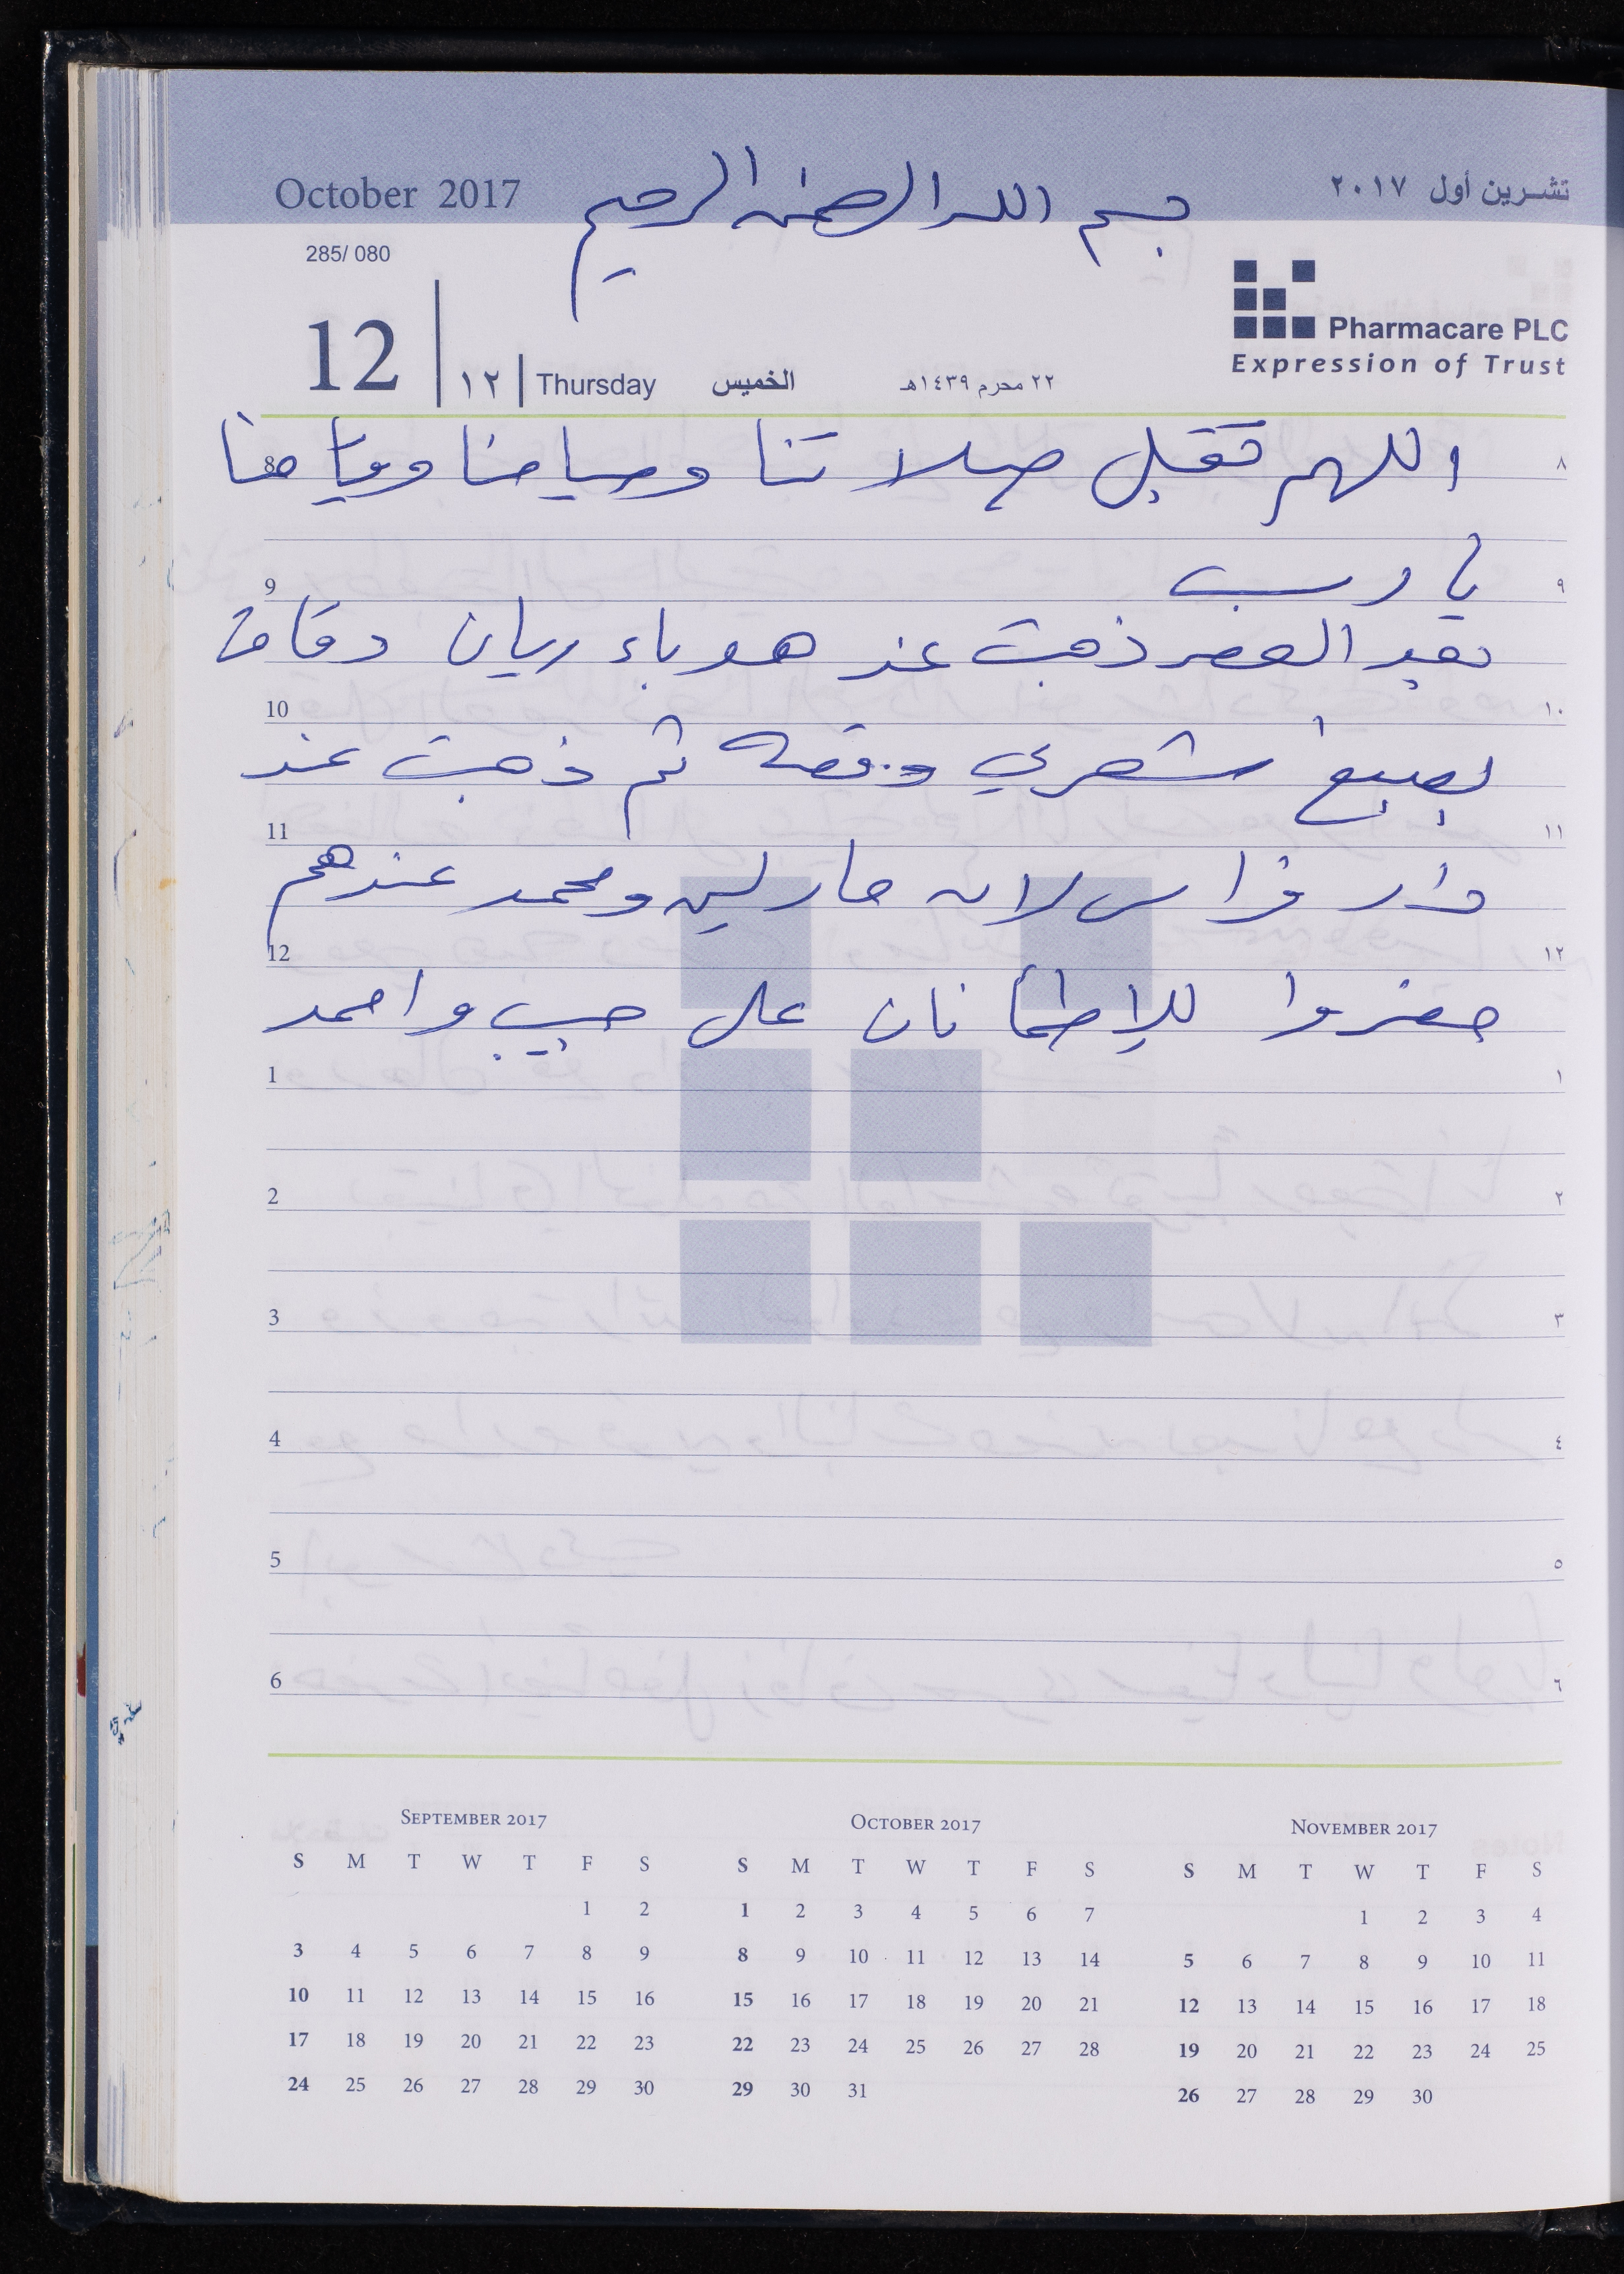 October 2017 بسم الله الرحمن الرحيم تشرين أول ٢٠١٧
285/ 080
Pharmacare PLC
Expression of Trust
12 ١٢ Thursday الخميس ٢٢ محرم ١٤٣٩هـ
8 اللهم تقبل صلاتنا وصيامنا وقيامنا ٨
9 يا رب ٩
بعد العصر ذهبت عند هوباء ريان دقامت
10 ١٠
بصبغ شعري وقصه ثم ذهبت عند
11 ١١
دار فراس لان مارلين ومحمد عندهم
12 ١٢
حضروا للإطمأنان على حبيب واحمد
1 ١
2 ٢
3 ٣
4 ٤
5 ٥
6 ٦
September 2017
S M T W T F S
1 2
3 4 5 6 7 8 9
10 11 12 13 14 15 16
17 18 19 20 21 22 23
24 25 26 27 28 29 30
October 2017
S M T W T F S
1 2 3 4 5 6 7
8 9 10 11 12 13 14
15 16 17 18 19 20 21
22 23 24 25 26 27 28
29 30 31
November 2017
S M T W T F S
1 2 3 4
5 6 7 8 9 10 11
12 13 14 15 16 17 18
19 20 21 22 23 24 25
26 27 28 29 30